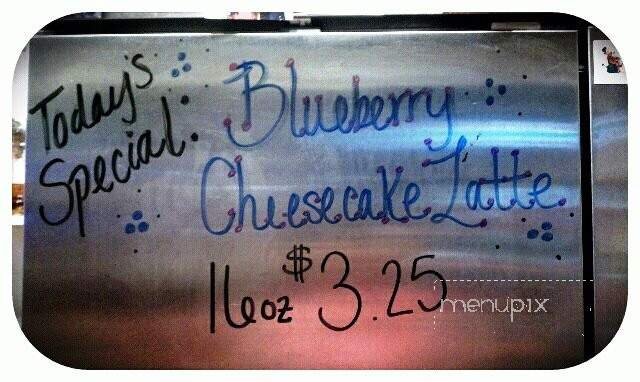 Today's
Special:
Blueberry
Cheesecake Latte
16oz $3.25
menupix